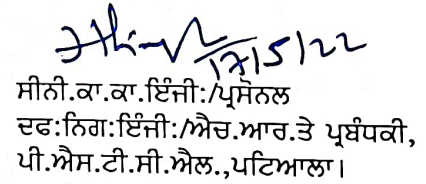 17/5/22
ਸੀਨੀ.ਕਾ.ਕਾ.ਇੰਜੀ:/ਪ੍ਰਸੋਨਲ
ਦਫ:ਨਿਗ:ਇੰਜੀ:/ਐਚ.ਆਰ.ਤੇ ਪ੍ਰਬੰਧਕੀ,
ਪੀ.ਐਸ.ਟੀ.ਸੀ.ਐਲ.,ਪਟਿਆਲਾ।